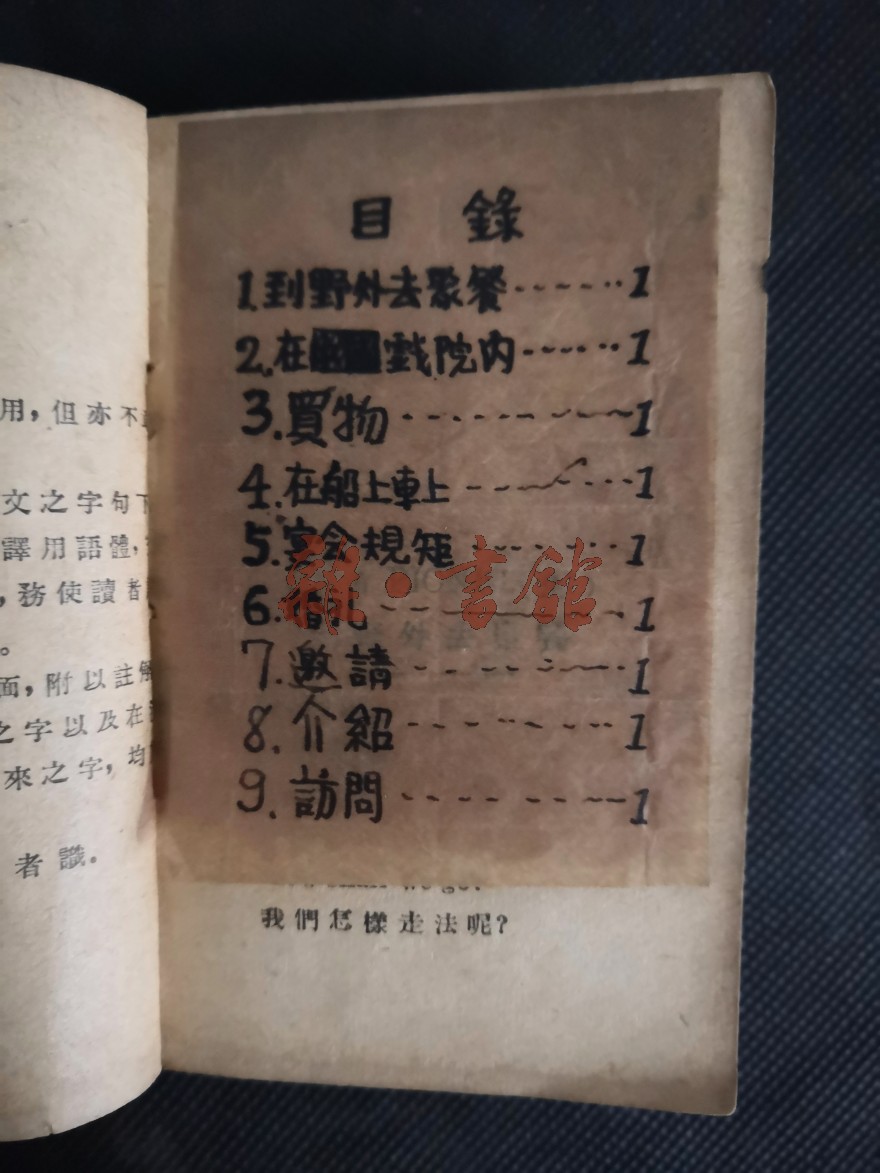 用,但亦不
文之字句下
譯用語體,
,務使讀者
。
面,附以註解
之字以及在
來之字,均
者識。
目 錄
1.到野外去聚餐------1
2.在戲院內------1
3.買物------1
4.在船上車上------1
5.宴会規矩------1
6.------1
7.邀請------1
8.介紹------1
9.訪問------1
雜·書館
我們怎樣走法呢?